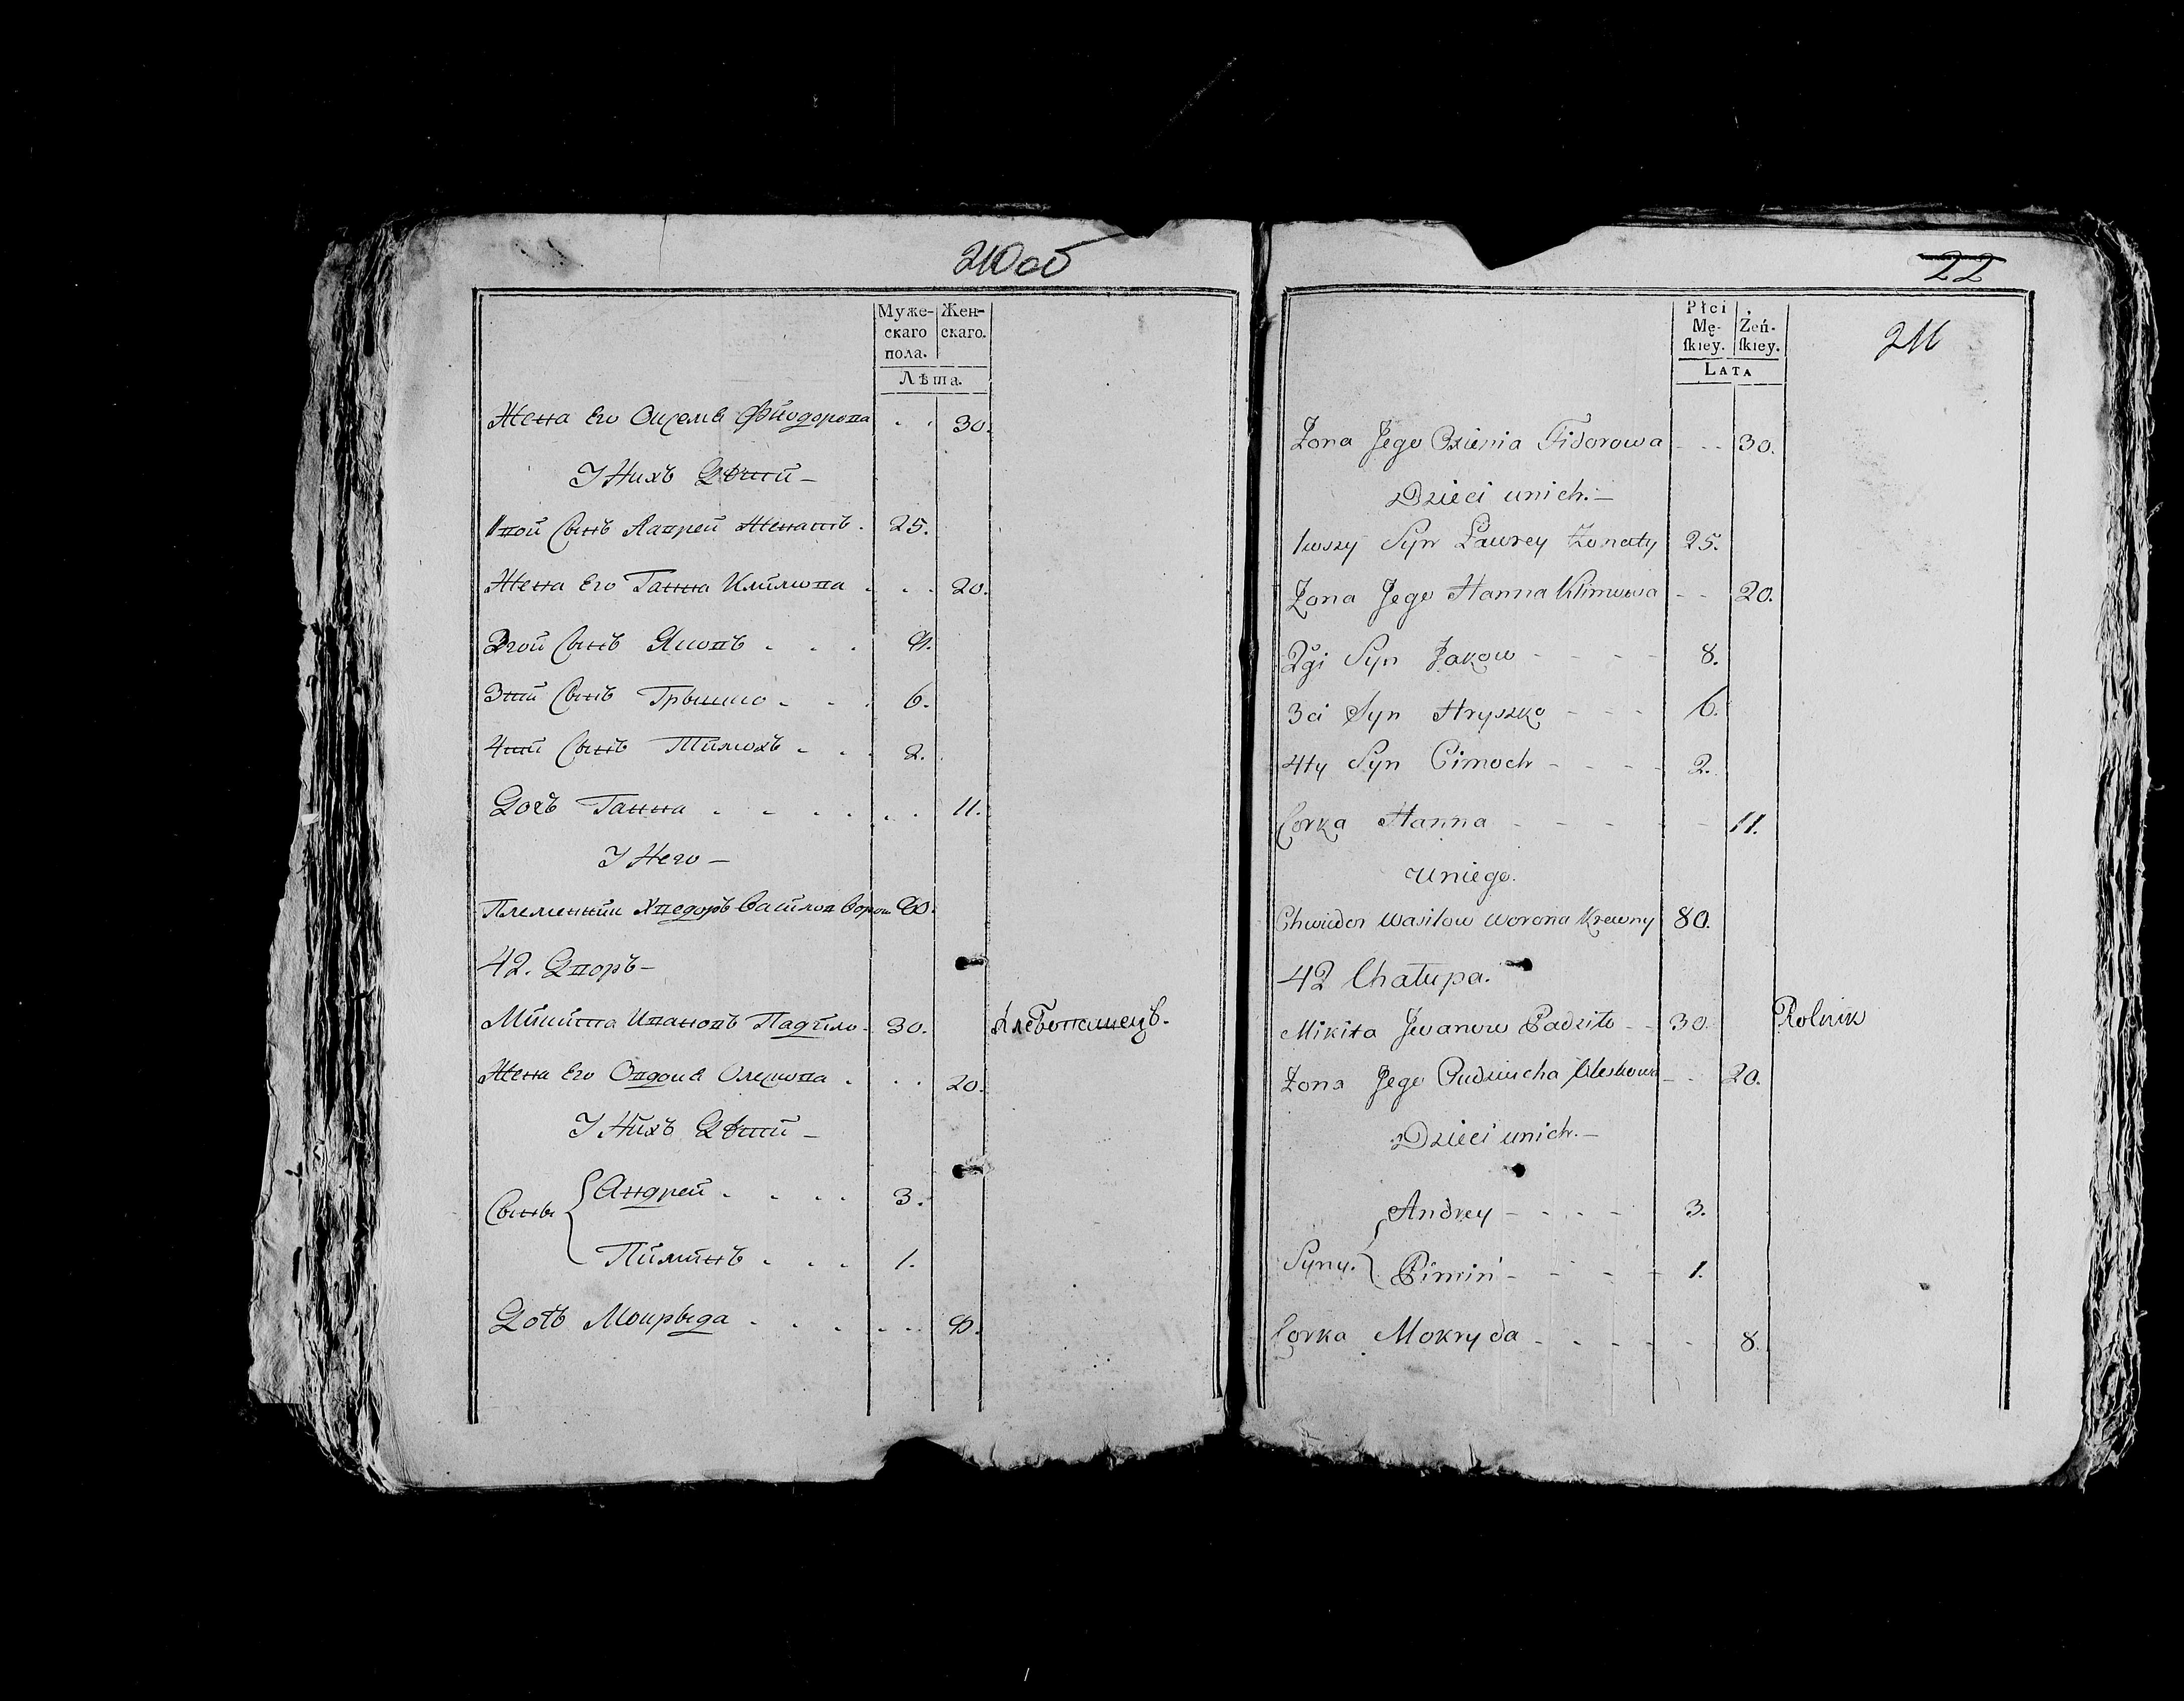 210 об
Муже-
скаго
пола.
Жен-
скаго.
Лѣта.
Жена Его Оксеня Фйодорова . . 30.
У Нихъ Дѣти —
1вой Сынъ Лаврей Женатъ . 25.
Жена Его Ганна Климова . . . 20.
2гой Сынъ Яковъ . . . 8.
3тй Сынъ Грышко . . . 6.
4тй Сынъ Тимохъ . . . 2.
Дочъ Ганна . . . . . . 11.
У Него —
Племенник Хведоръ Василов Ворон 80.
42. Дворъ —
Микита Ивановъ Падзило . 30. Хлебопашецъ.
Жена Его Олескова . . . 20.
У Нихъ Дѣти —
Сыны { Андрей . . . . 3.
Пиминъ . . . 1.
Дочъ Мокрыда . . . . . . 8.
22
211
Płci
Mę-
ſkiey.
Żeń-
ſkiey.
LATA
Zona Jego Oxienia Fidorowa - - - 30.
Dzieci unich. —
1wszy Syn Ławrey Zonaty 25.
Zona Jego Hanna Klimowa - - 20.
2gi Syn Jakow - - - - 8.
3ci Syn Hryszko - - - 6.
4ty Syn Cimoch - - - - 2.
Corka Hanna - - - - - 11.
uniego.
Chwiedor Wasilow Worona Krewny 80.
42 Chałupa.
Mikita Jwanow Padziło - - 30. Rolnik
Zona Jego Oleskowa - - 20.
Dzieci unich. —
Syny. { Andrey - - - - - 3.
Pimin - - - - 1.
Corka Mokryda - - - - - - 8.